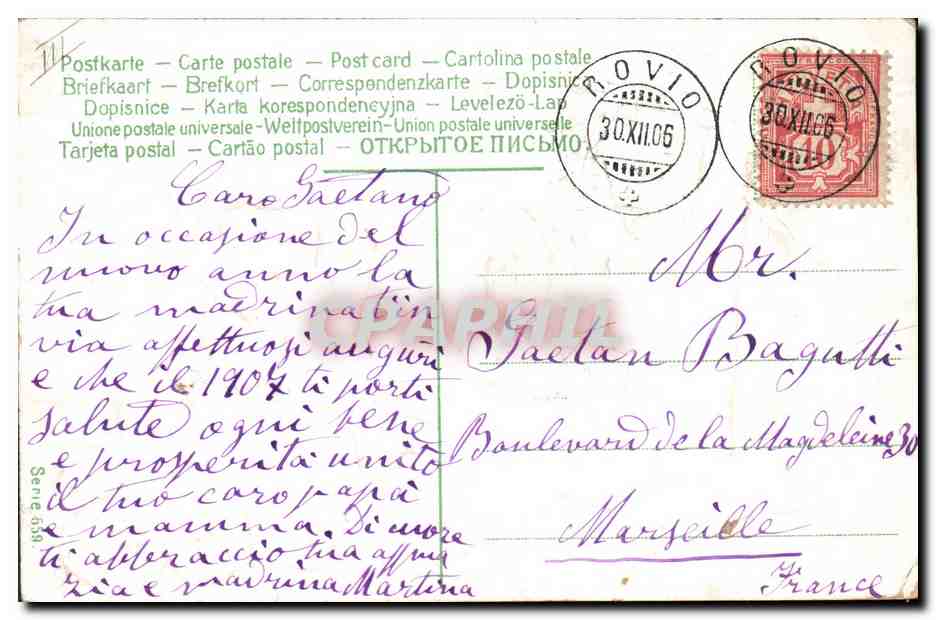 III
Postkarte – Carte postale – Post card – Cartolina postale
Briefkaart – Brefkort – Correspondenzkarte – Dopisnice
Dopisnice – Karta korespondencyjna – Levelező-Lap
Unione postale universale – Weltpostverein – Union postale universelle
Tarjeta postal – Cartão postal – ОТКРЫТОЕ ПИСЬМО
ROVIO
30.XII.06
ROVIO
30.XII.06
10
Caro Gaetano
In occasione del
nuovo anno la
tua madrina t'in
via affettuosi auguri
e che il 1907 ti porti
salute ogni bene
e prosperità unito
il tuo caro papà
e mamma. Di cuore
ti abbraccio tua
zia e madrina Martina
Mr.
Gaetan Bagutti
Boulevard de la Magdeleine 30
Marseille
France
Serie 659.
CPARHIII